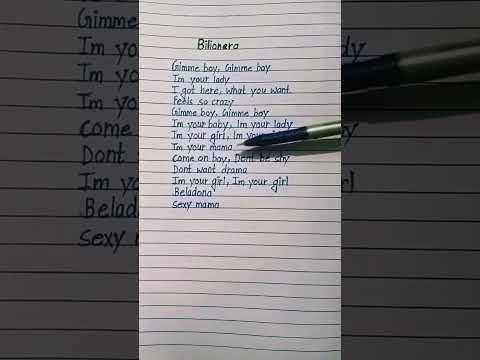 Bilionera
Gimme boy, Gimme boy
Im your lady
I got here, what you want
Feels so crazy
Gimme boy, Gimme boy
Im your baby, Im your lady
Im your girl, Im your
Im your mama
come on boy, Dont be shy
Dont want drama
Im your girl, Im your girl
Beladona
Sexy mama